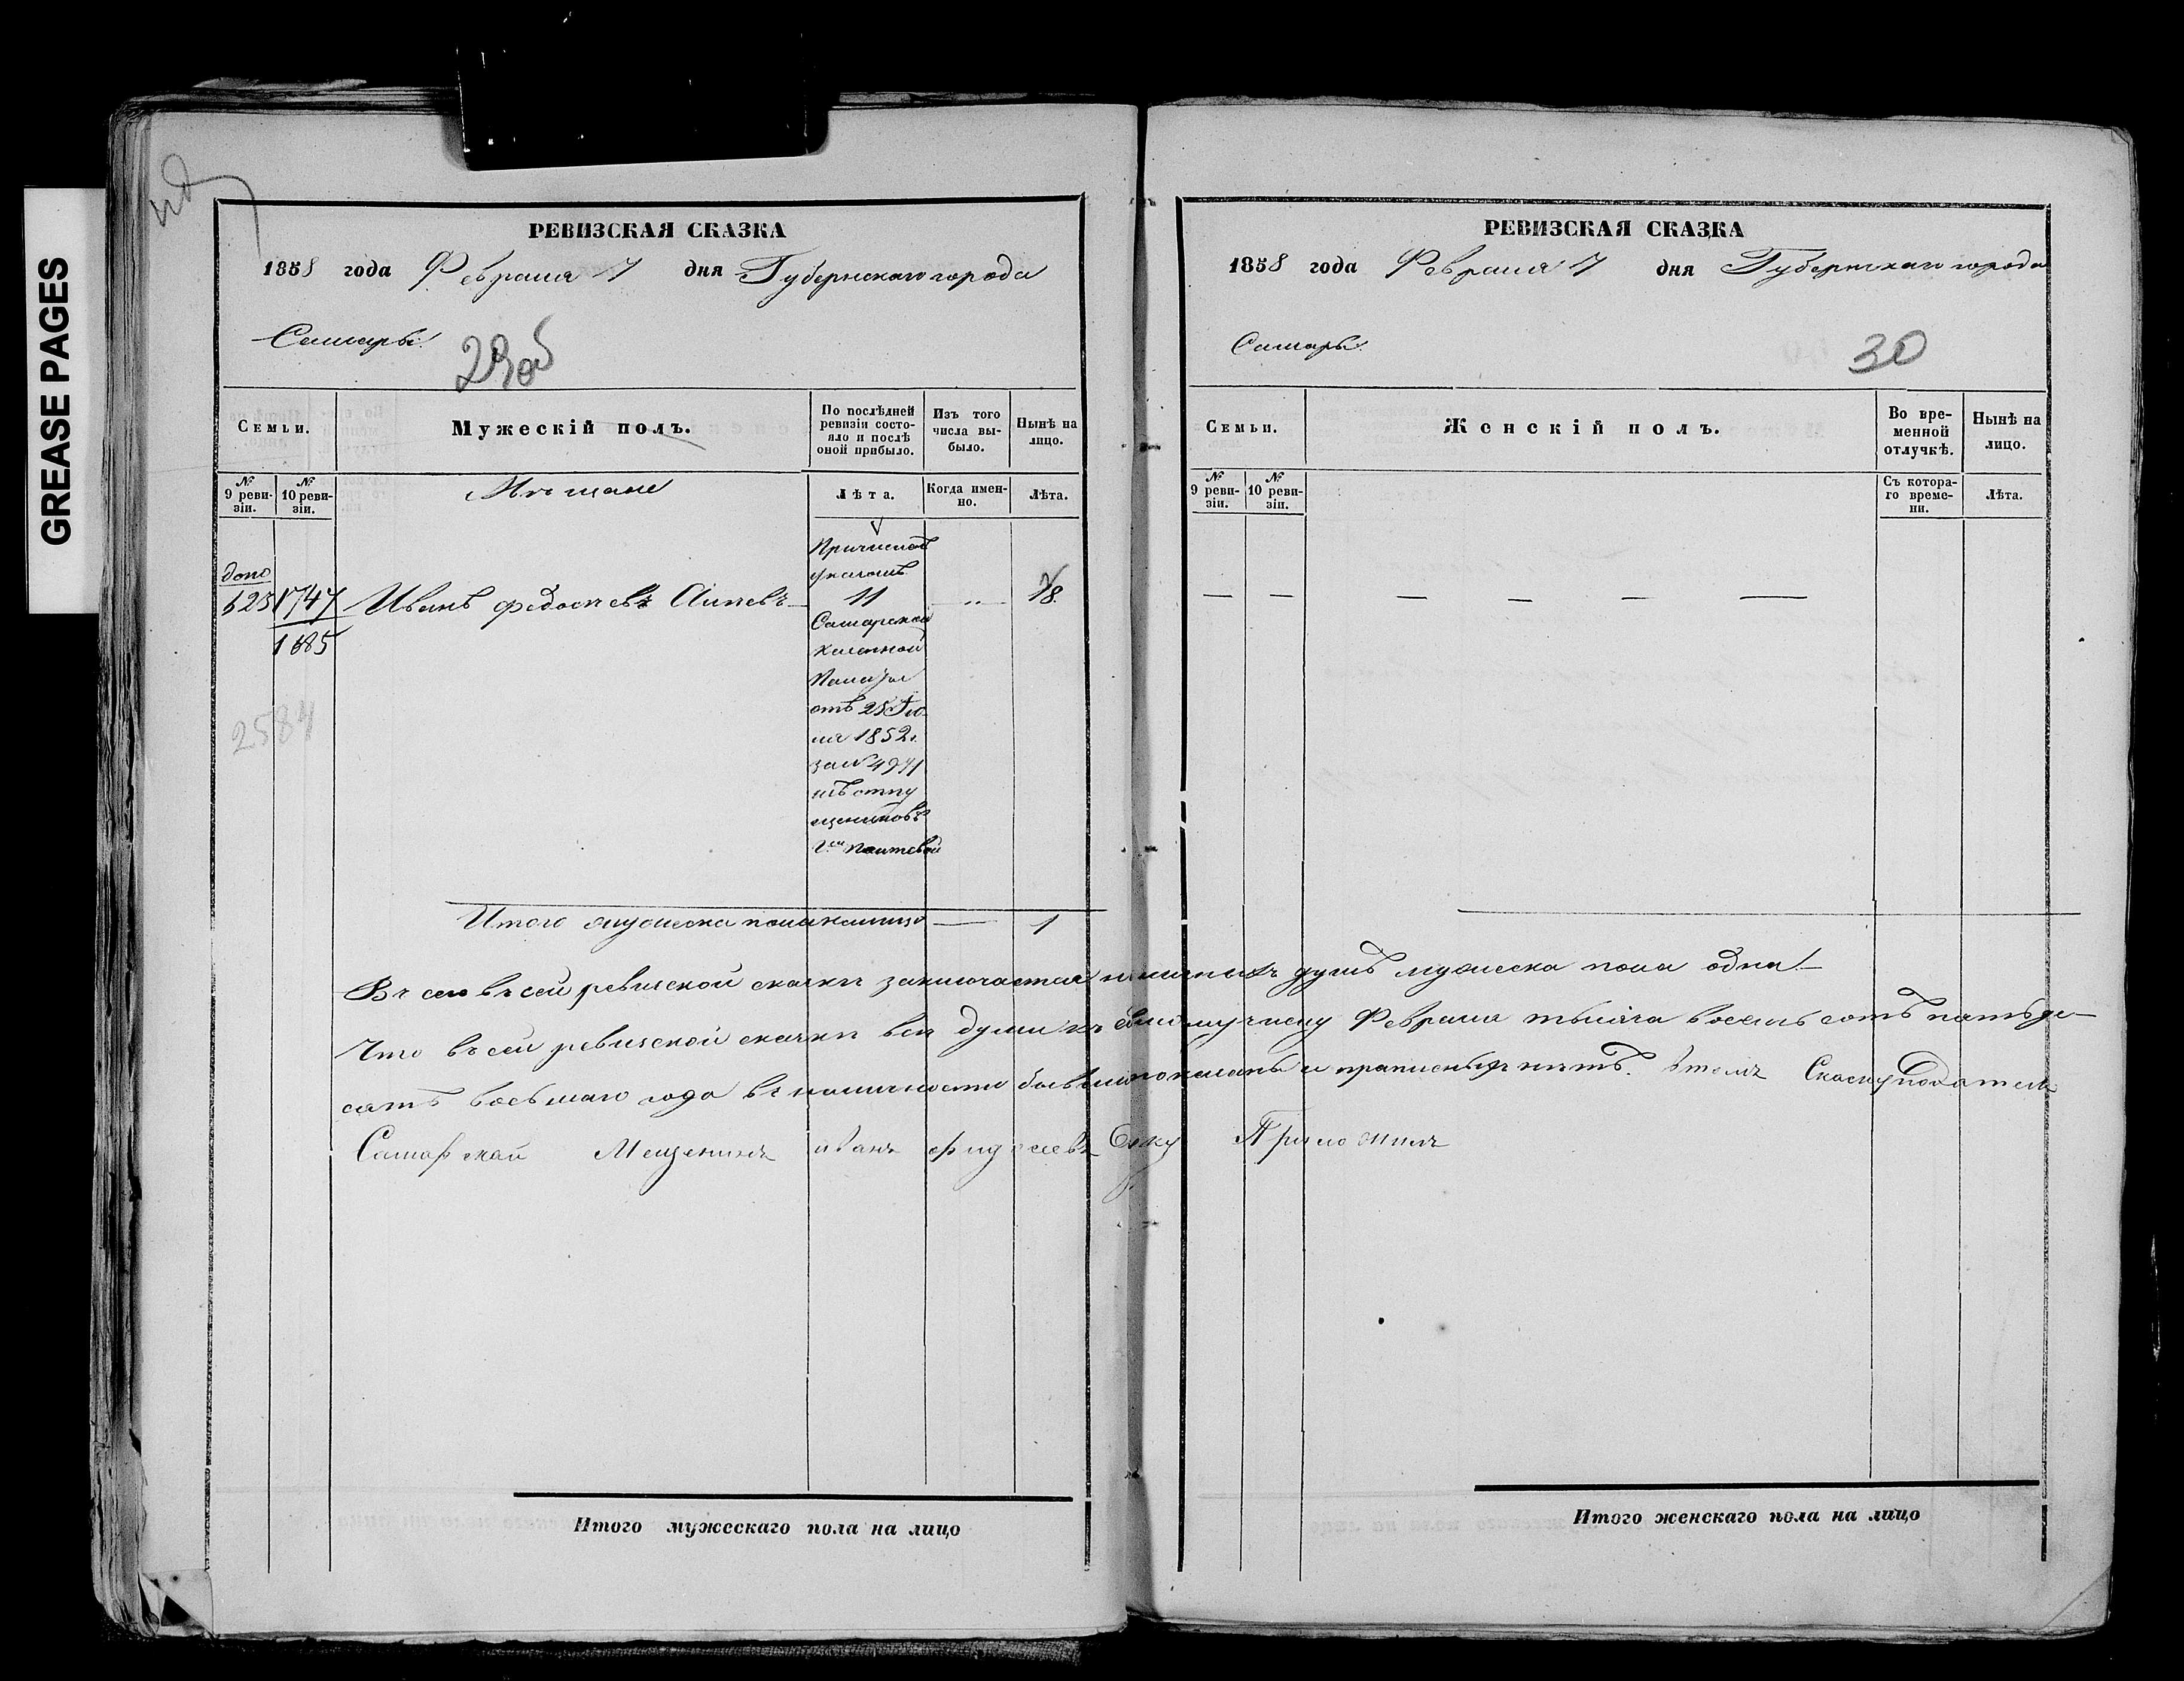 GREASE PAGES
РЕВИЗСКАЯ СКАЗКА
1858 года Февраля 7 дня Губернскаго города
Самары.
29об
Семьи.
Мужескій полъ.
По послѣдней ревизіи состояло и послѣ оной прибыло.
Изъ того числа выбыло.
Нынѣ на лицо.
№ 9 ревизіи.
№ 10 ревизіи.
Мѣщане
Лѣта.
Когда именно.
Лѣта.
допо
623 1747 Иванъ Федосѣевъ
1685
Причислѣ
указомъ
11
18.
Самарской
казенной
Палаты
отъ 28 Ію
ня 1852 г.
за №
изъ отпу
щениковъ
2584
Итого мужеска пола налицо — 1
Въ сей ревизской сказкѣ заключается наличныхъ душъ мужеска пола одна. —
Что въ сей ревизской сказкѣ всѣ души къ числу Февраля тысяча восемь сотъ пятьде-
сятъ восьмаго года въ наличности показаны и прописныхъ нѣтъ. В томъ Сказкуподатель
Самарской Мещенинъ иванъ руку Приложилъ
Итого мужескаго пола на лицо
РЕВИЗСКАЯ СКАЗКА
1858 года Февраля 7 дня Губернскаго города
Самары.
30
Семьи.
Женскій полъ.
Во временной отлучкѣ.
Нынѣ на лицо.
№ 9 ревизіи.
№ 10 ревизіи.
Съ котораго времени.
Лѣта.
— — — — — — —
Итого женскаго пола на лицо